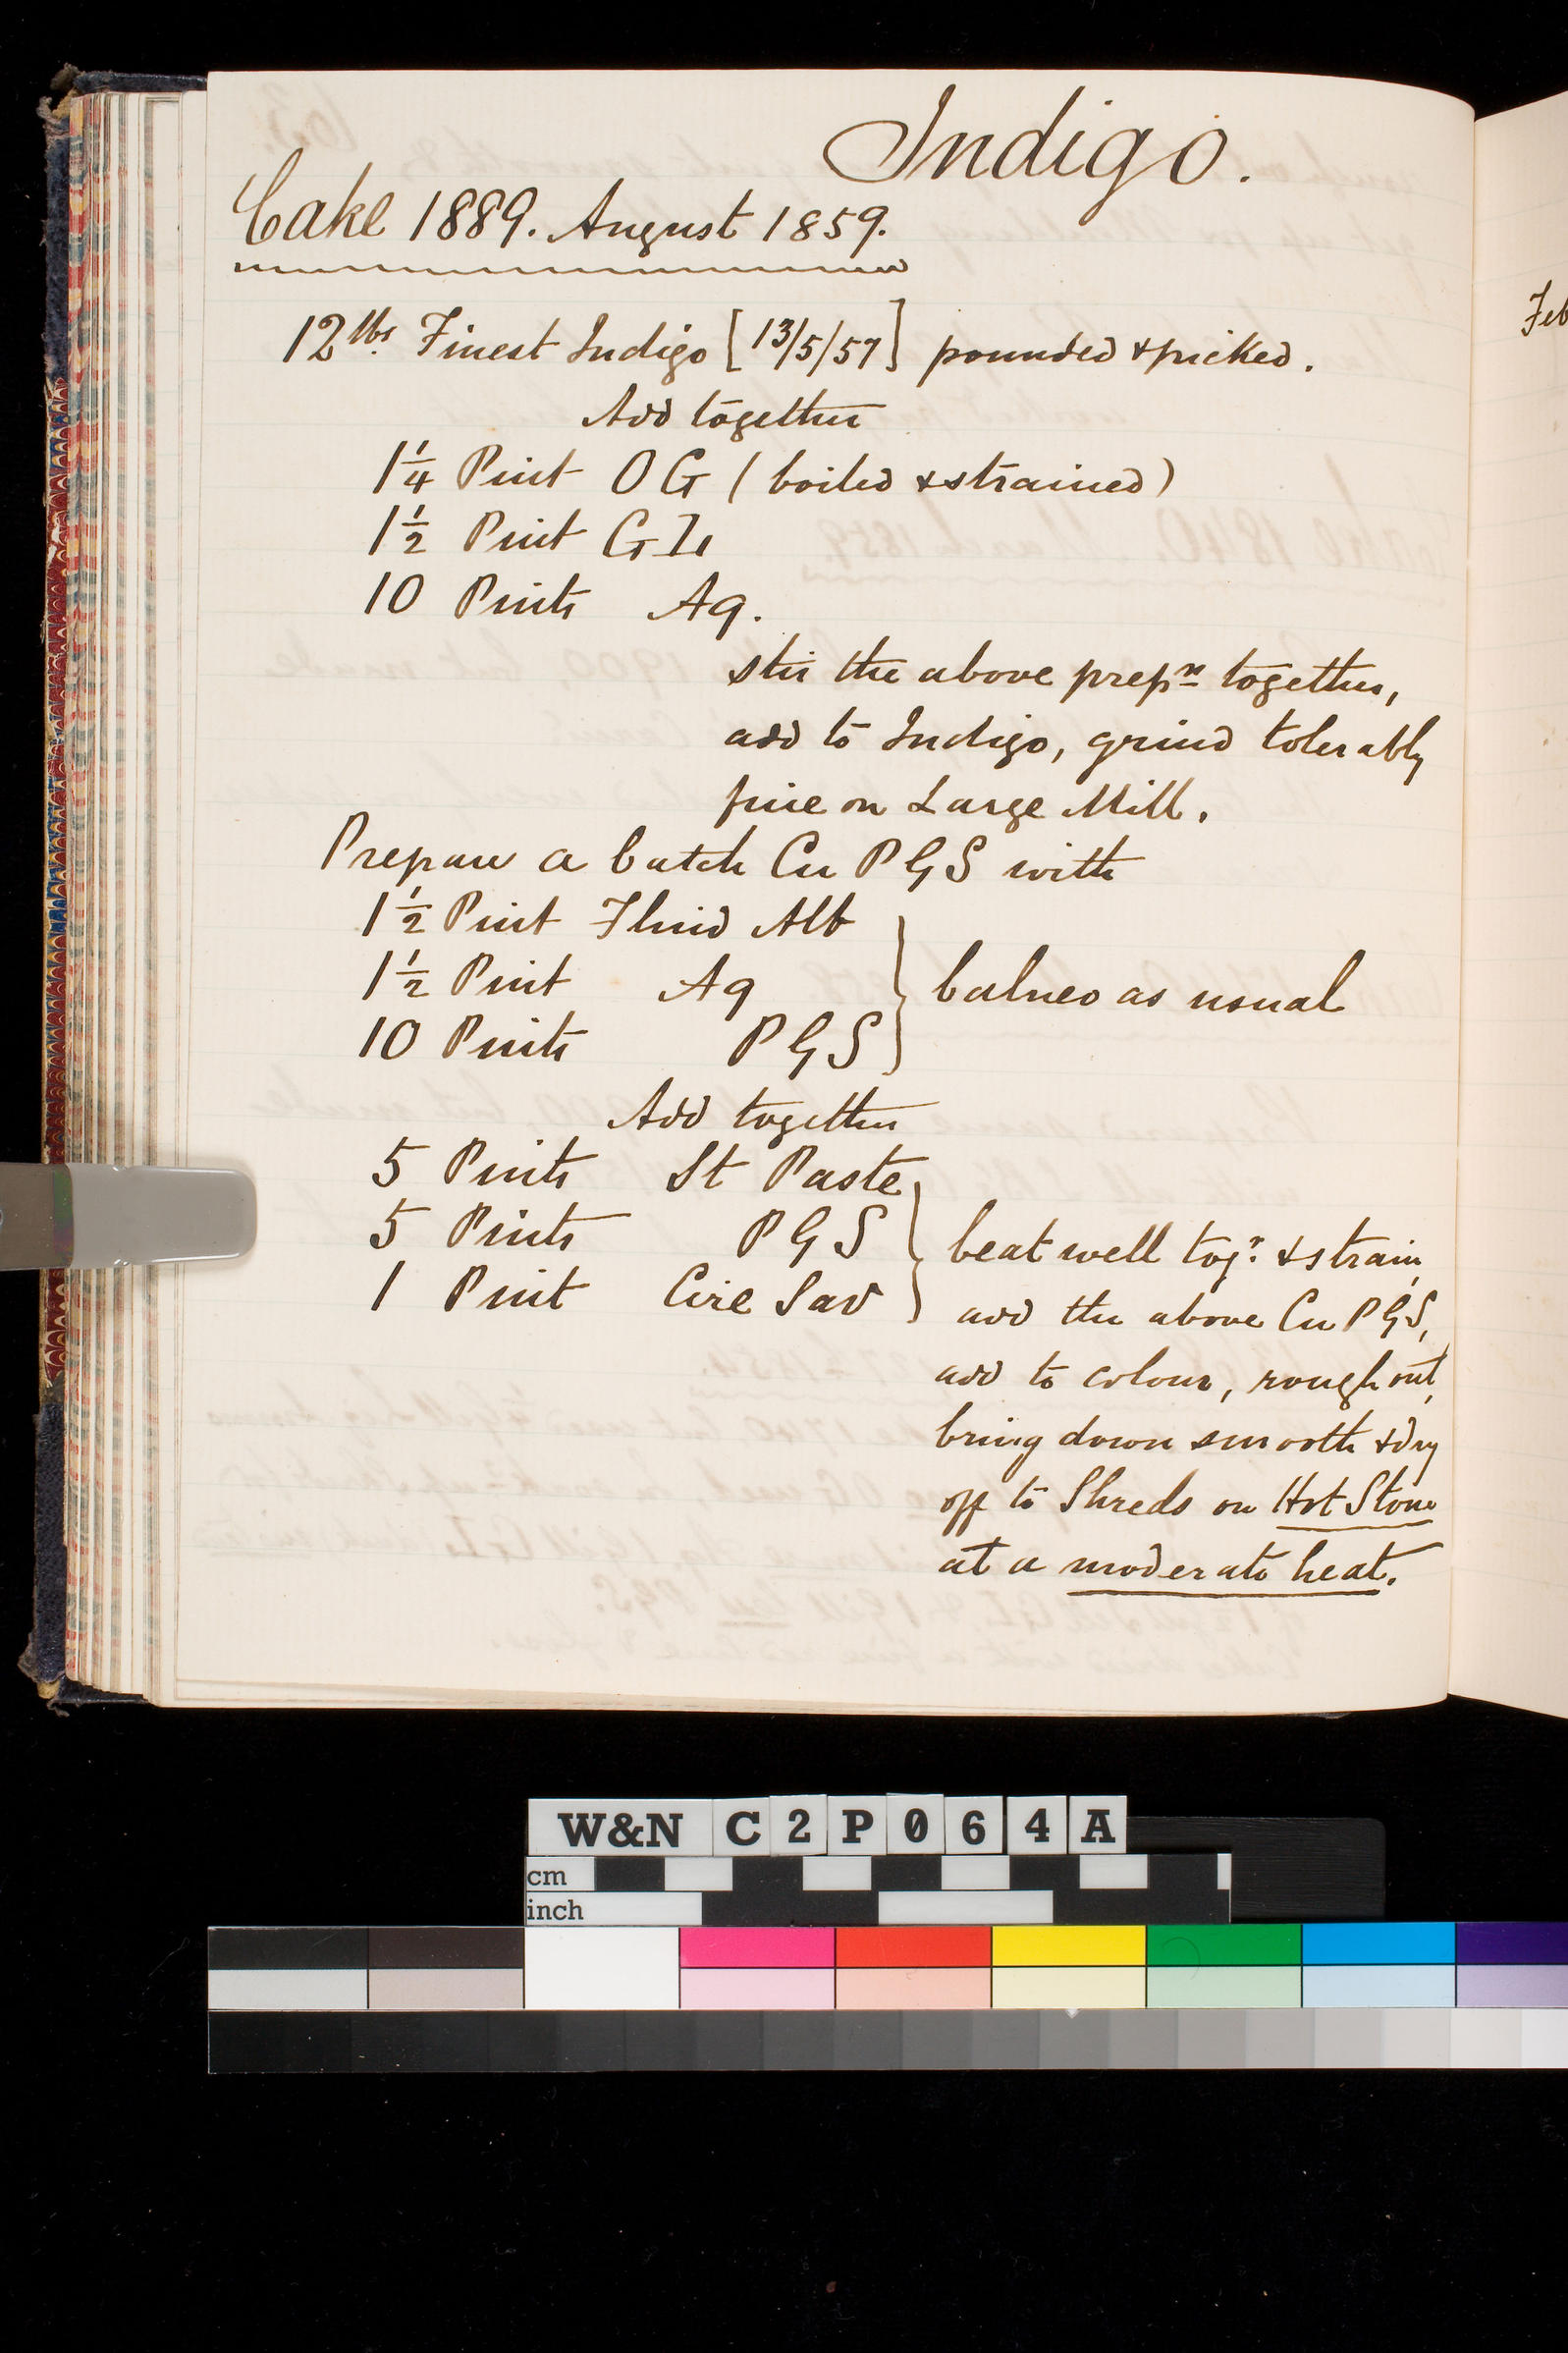 Indigo.
Cake 1889. August 1859.
12 lbs. Finest Indigo [13/5/57] pounded & picked.
Add together
1 1/4 Pint OG (boiled & strained)
1 1/2 Pint G I
10 Pints Aq.
stir the above prepn together,
add to Indigo, grind tolerably
fine on Large Mill.
Prepare a batch Cu PGS with
1 1/2 Pint Fluid Alb
1 1/2 Pint Aq
10 Pints PGS
balneo as usual
Add together
5 Pints St Paste
5 Pints PGS
1 Pint Cire Sav
beat well togr. & strain,
add the above Cu PGS,
add to colour, rough out,
bring down smooth & dry
off to Shreds on Hot Stone
at a moderate heat.
Feb
W&N C2P064A
cm
inch